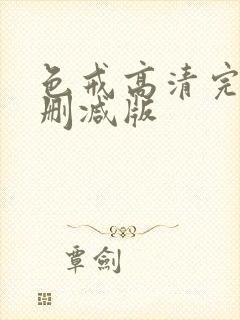 色戒高清完
删减版
覃劍